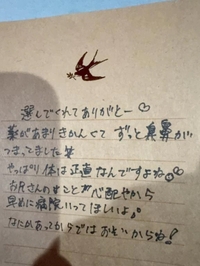 渥してくれてありがとー♡
薬があまりきかんくて ずっと鼻が
つまってました笑
やっぱり体は正直なんですよね
お兄さんのすことが心配やから
早めに病院いってほしいよ。
なにかあってからではおそいからね!